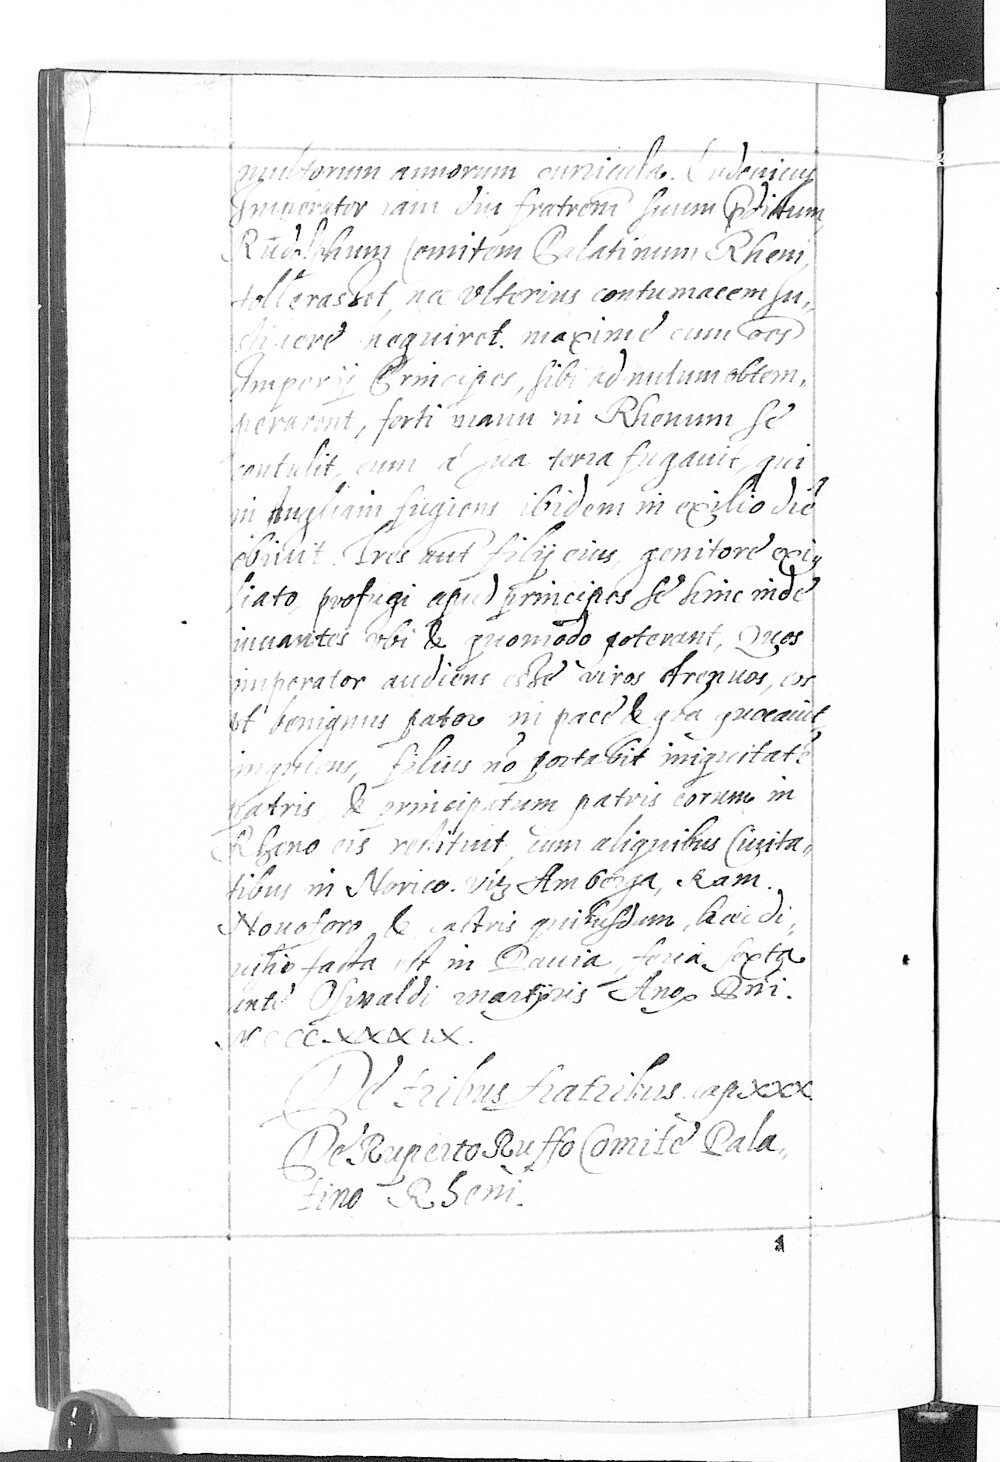 multorum annorum curricula. Ludouicus
Imperator iam diu fratrem̄ suum p̄dictum,
Rudolphum Comitem Palatinum Rheni,
tollerasset, nec vlterius contumacem su,,
nequiret. maxime cum oēs
Imperij Principes, sibi ad nutum obtem,,
perarent, forti manu in Rhenum se
contulit, eum a sua terra fugauit, qui
in Angliam fugiens ibidem in exilio diē
obiuit. Tres aut̄ filij eius, genitore exi,,
liato, profugi apud principes se hinc inde
iuuantes vbi & quomodo poterant, Quos
imperator audiens esse viros strenuos, eos
vt benignus pater in pace & gr̄a
inquiens, filius nō portabit iniquitatē
patris, & principatum patris eorum in
Rheno eis restituit, cum aliquibus Ciuita,,
tibus in Norico. viz Amberga, Kam.
Nouoforo & castris quibusdam, haec di,,
uisio facta est in Pauia, feria sexta
ante Oswaldi martyris Ano Dni.
MCCCXXXIX.
De tribus fratribus. cap. XXX.
De Ruperto Ruffo Comite Pala,,
tino Rheni.
1